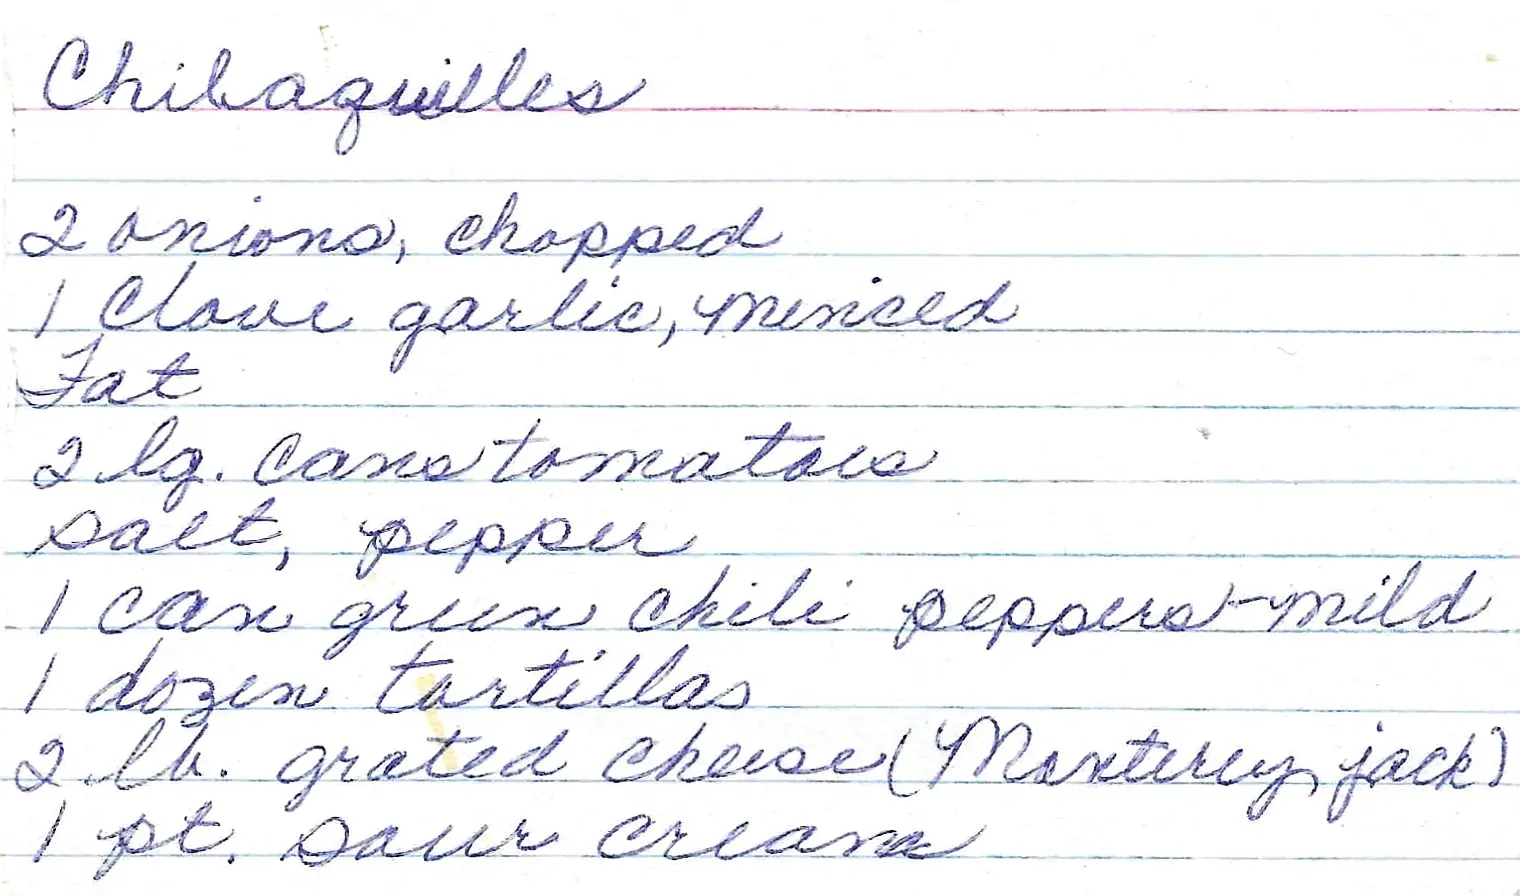 Chilaquilles
2 onions, chopped
1 Clove garlic, minced
Fat
2 lg. cans tomatoes
salt, pepper
1 can green chili peppers-mild
1 dozen tortillas
2 lb. grated cheese (Monterey jack)
1 pt. sour cream